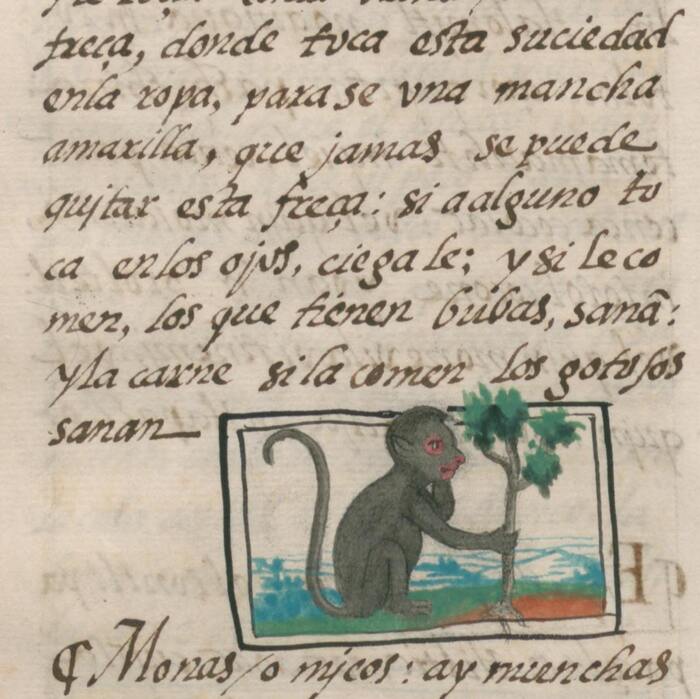 freça, donde toca esta suciedad
enla ropa, parase vna mancha
amarilla, que jamas sepuede
quitar esta freça: si aalguno to
ca enlos ojos, ciegale; ysi leco
men, los que tienen bubas, sanā:
yla carne sila comen los gotosos
sanan
¶ Monas/o micos: ay muenchas